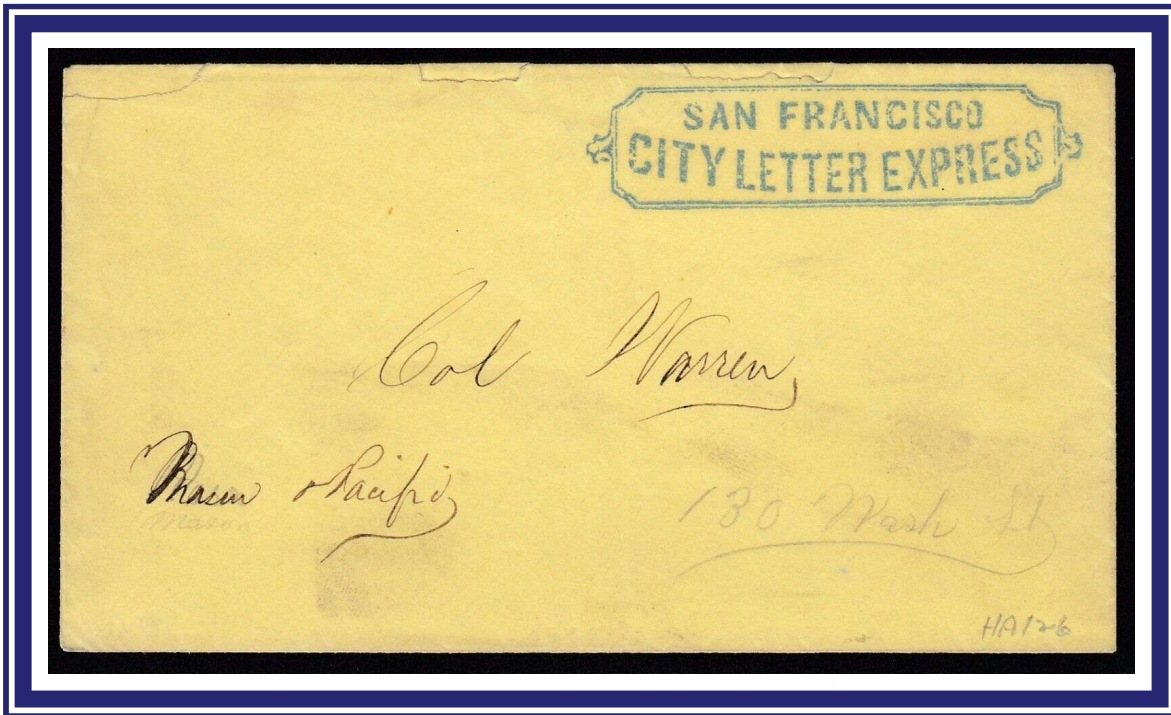 SAN FRANCISCO
CITY LETTER EXPRESS
Col Warren
Mason & Pacific
Mason
130 Wash St
HA126